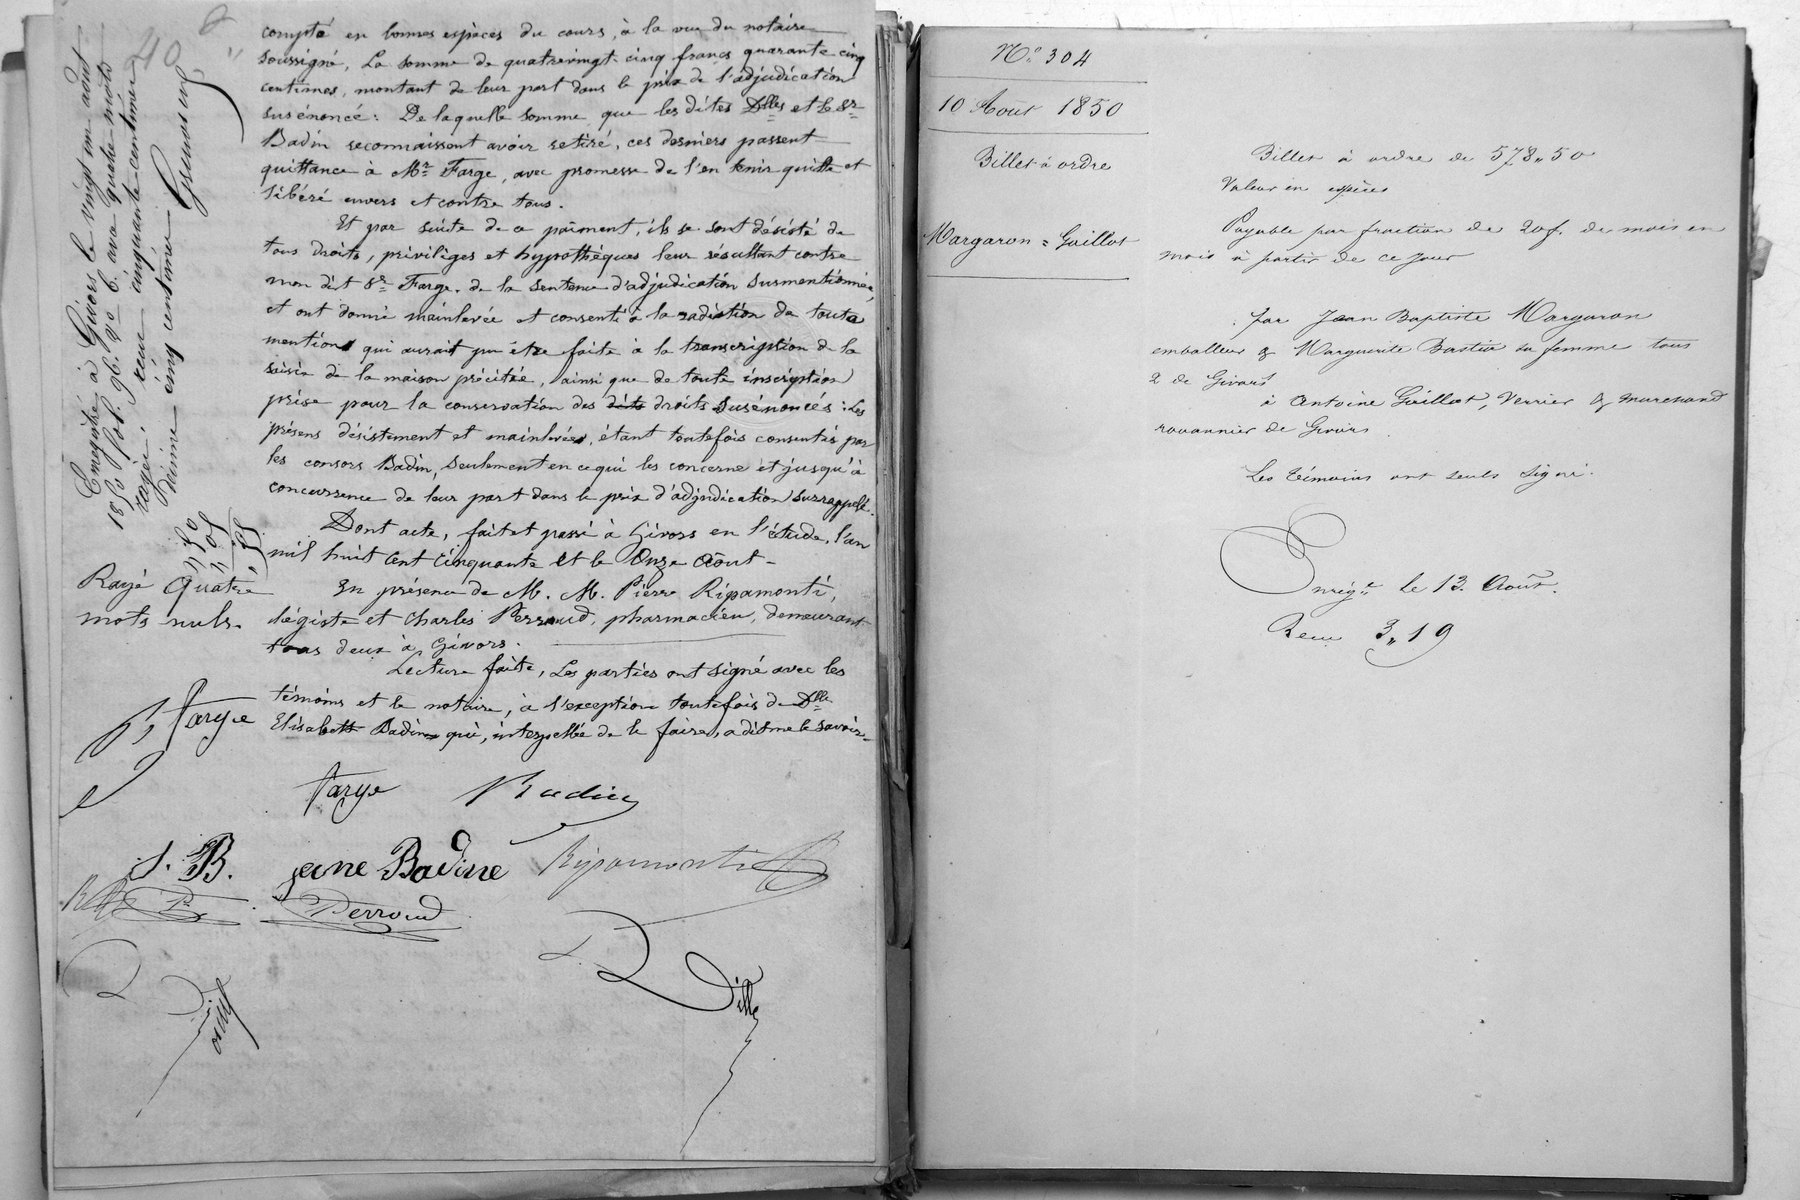 40
compté en bonnes espèces du cours, à la vue du notaire
soussigné, La somme de quatrevingt-cinq francs quarante cinq
centimes, montant de leur part dans le prix de l'adjudication
susénoncé: De laquelle somme que les dites Dlles et le Sr
Badin reconnaissent avoir retiré, ces derniers passent
quittance à Mr Farge, avec promesse de l'en tenir quitte et
libéré envers et contre tous.
Et par suite de ce paiment, ils se sont désisté de
tous droits, priviléges et hypothéques leur résultant contre
mon dit Sr Farge, de la sentence d'adjudication susmentionnée,
et ont donné mainlevée et consenti à la radiation de toute
mention qui aurait pu être faite à la transcription de la
saisie de la maison précitée, ainsi que de toute inscription
prise pour la conservation des dits droits susénoncés: Les
présens désistement et mainlevées, étant toutefois consentis par
les consors Badin, seulement en ce qui les concerne et jusqu'à
concurrence de leur part dans le prix d'adjudication surrappelé.
Dont acte, fait et passé à Givors en l'étude, l'an
mil huit cent cinquante et le Onze Août -
En présence de M. M. Pierre Ripamonti,
légiste et Charles Perroud, pharmacien, demeurant
tous deux à Givors.
Lecture faite, Les parties ont signé avec les
témoins et le notaire, à l'exception toutefois de Dlle
Elisabeth Badin qui, interpellée de le faire, a dit ne le savoir.
Enregistré à Givors le vingt un août
1850 fol. 96. Ro C. 6
cinquante centimes
décime cinq centimes
Rayé quatre
mots nuls.
Farge
Farge Badin
J. B. jeane Badine Ripamonti
Perroud
Dille
No 304
10 Aout 1850
Billet à ordre
Margaron = Guillot
Billet à ordre de 578,,50
Valeur en espèces
Payable par fraction de 20f. de mois en
mois à partir de ce jour
par Jean Baptiste Margaron
emballeur & Marguerite Bastia sa femme tous
2 de Givors
à Antoine Guillot, Verrier & marchand
rouannier de Givors
Les témoins ont seuls signé.
Enregt le 13. Août.
Recu 3,,19